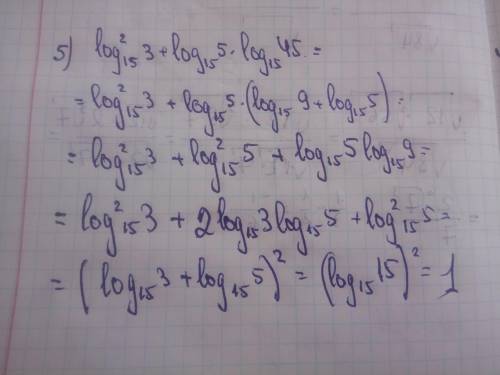 5) log²₁₅3 + log₁₅5 · log₁₅45 =
= log²₁₅3 + log₁₅5 · (log₁₅9 + log₁₅5) =
= log²₁₅3 + log²₁₅5 + log₁₅5 log₁₅9 =
= log²₁₅3 + 2log₁₅3log₁₅5 + log²₁₅5 =
= (log₁₅3 + log₁₅5)² = (log₁₅15)² = 1